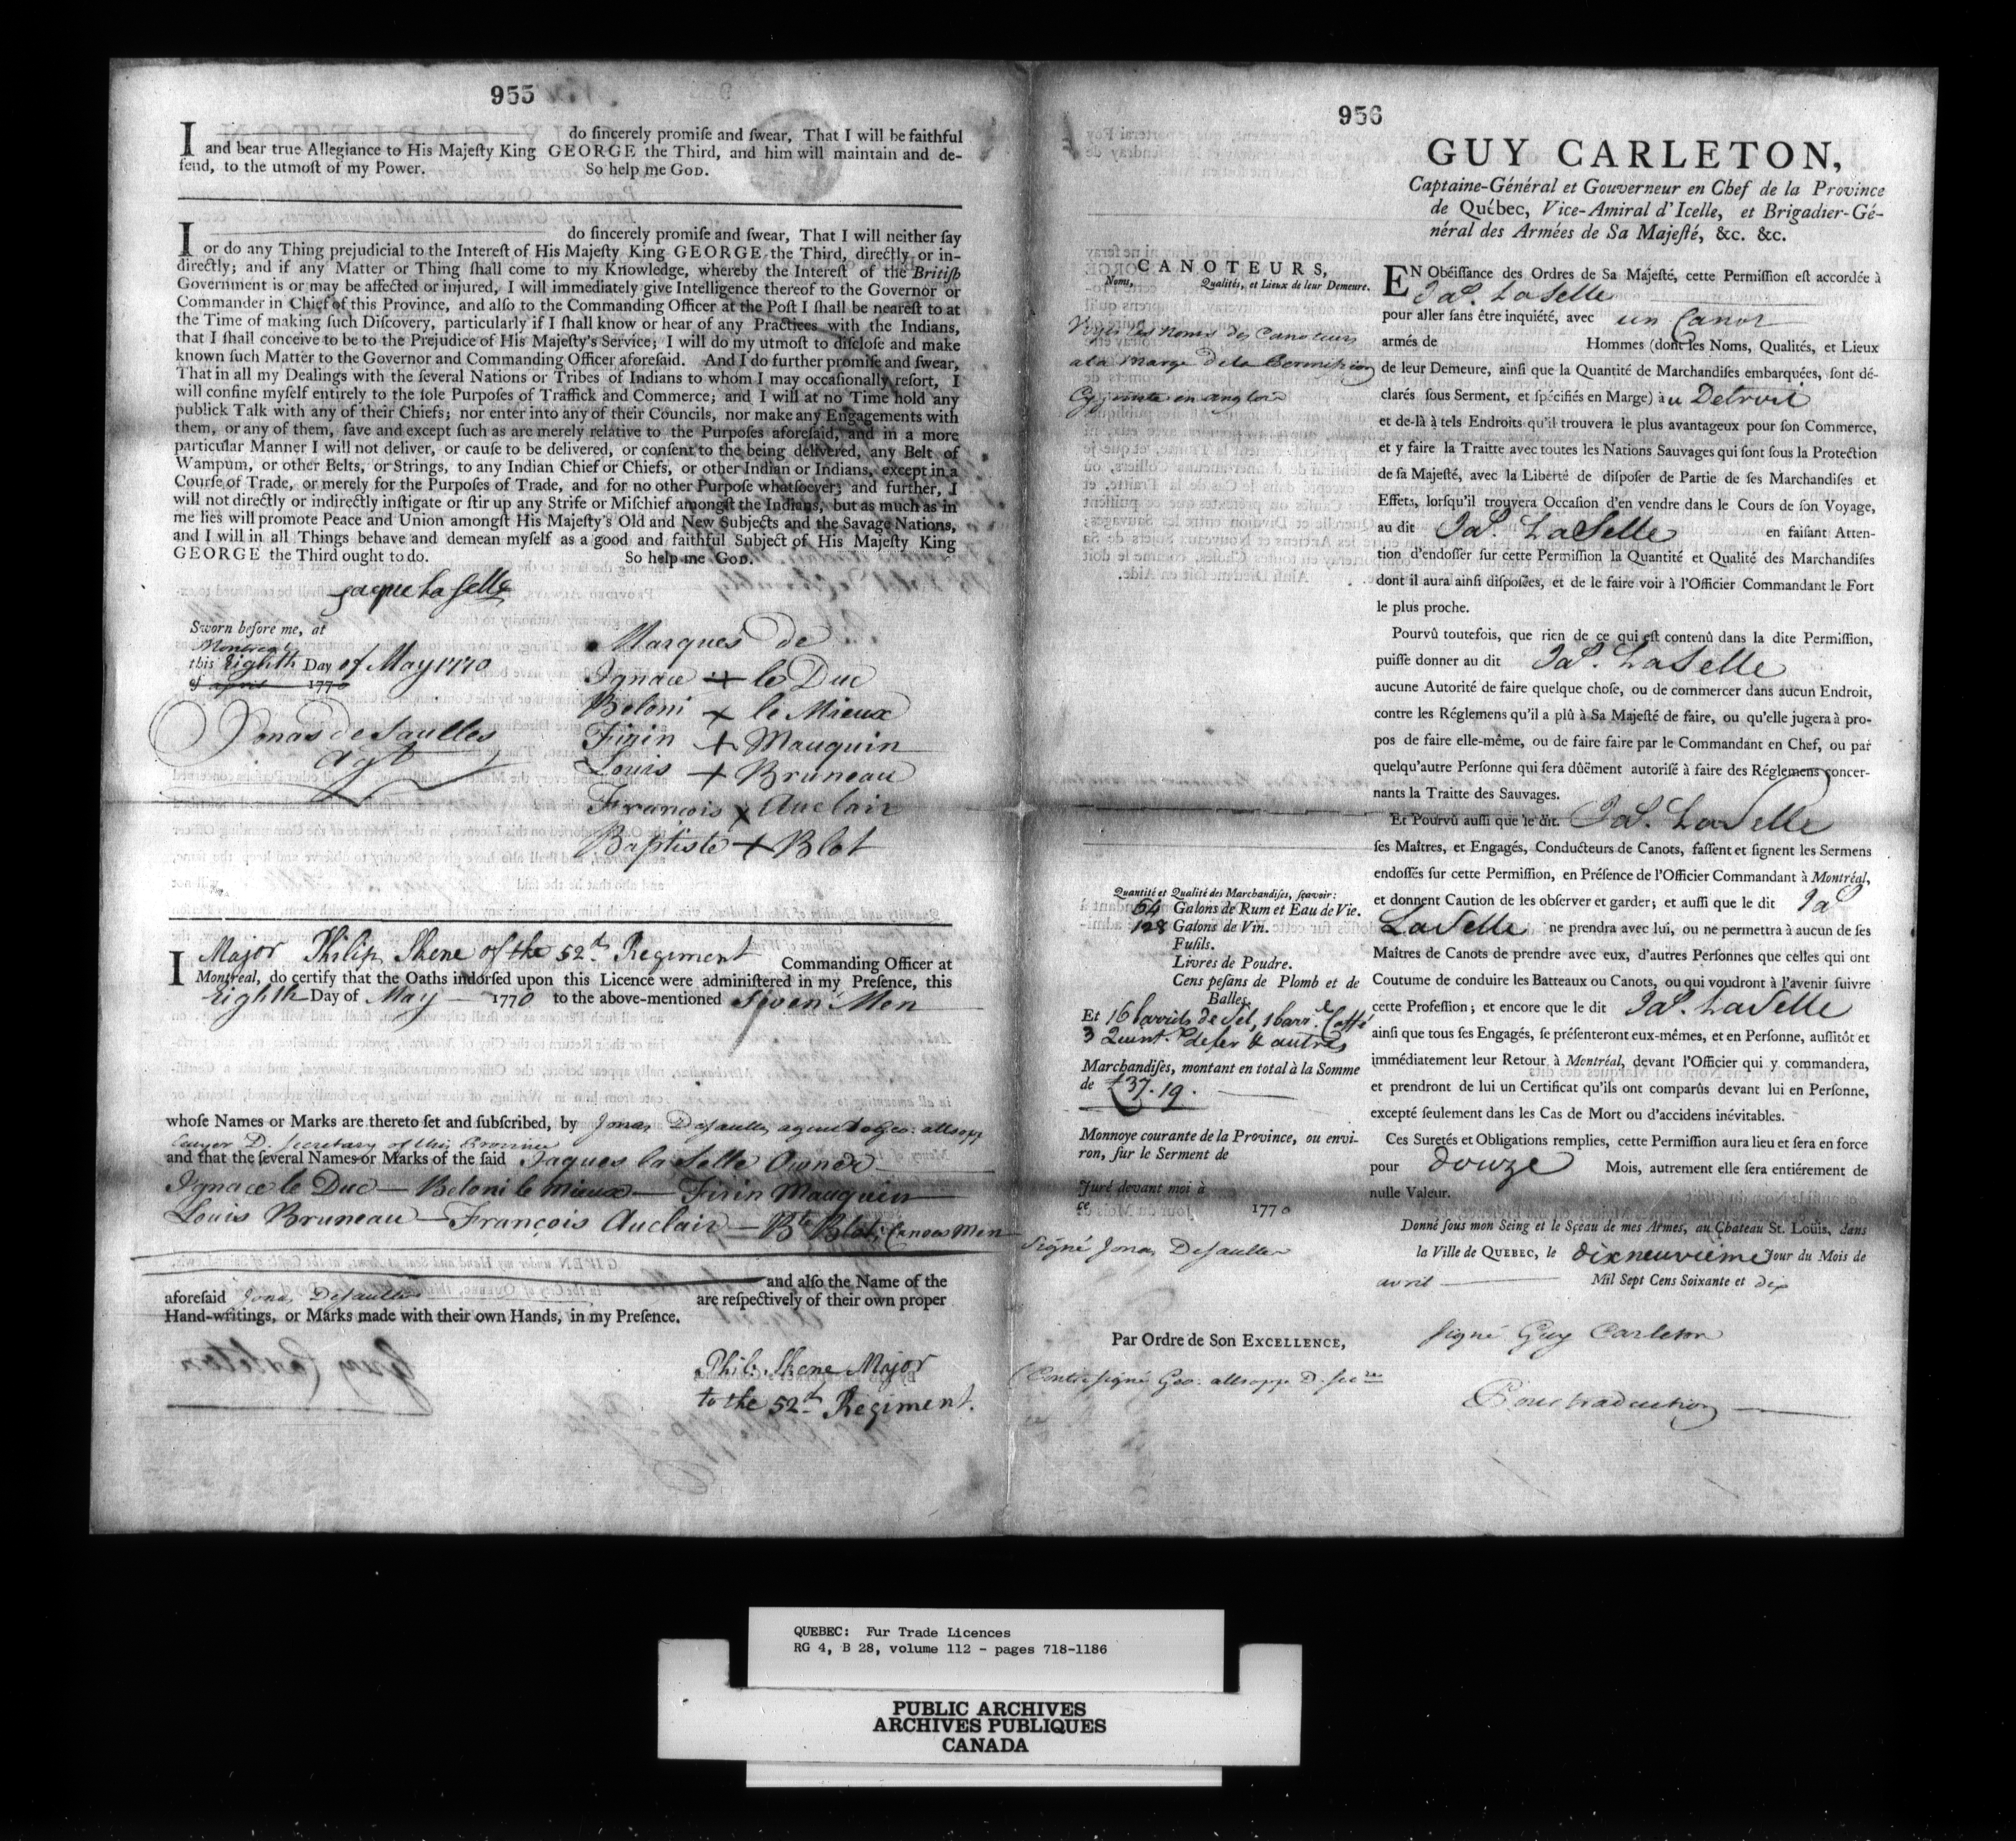 955
I do sincerely promiſe and ſwear, That I will be faithful
and bear true Allegiance to His Majeſty King GEORGE the Third, and him will maintain and de-
fend, to the utmoſt of my Power. So help me GOD.
I do ſincerely promiſe and ſwear, That I will neither ſay
or do any Thing prejudicial to the Intereſt of His Majeſty King GEORGE the Third, directly or in-
directly; and if any Matter or Thing ſhall come to my Knowledge, whereby the Intereſt of the Britiſh
Government is or may be affected or injured, I will immediately give Intelligence thereof to the Governor or
Commander in Chief of this Province, and alſo to the Commanding Officer at the Poſt I ſhall be neareſt to at
the Time of making ſuch Diſcovery, particularly if I ſhall know or hear of any Practices with the Indians,
that I ſhall conceive to be to the Prejudice of His Majeſty's Service; I will do my utmoſt to diſcloſe and make
known ſuch Matter to the Governor and Commanding Officer aforeſaid. And I do further promiſe and ſwear,
That in all my Dealings with the ſeveral Nations or Tribes of Indians to whom I may occaſionally reſort, I
will confine myſelf entirely to the ſole Purpoſes of Traffick and Commerce; and I will at no Time hold any
publick Talk with any of their Chiefs; nor enter into any of their Councils, nor make any Engagements with
them, or any of them, ſave and except ſuch as are merely relative to the Purpoſes aforeſaid, and in a more
particular Manner I will not deliver, or cauſe to be delivered, or conſent to the being delivered, any Belt of
Wampum, or other Belts, or Strings, to any Indian Chief or Chiefs, or other Indian or Indians, except in a
Courſe of Trade, or merely for the Purpoſes of Trade, and for no other Purpoſe whatſoever; and further, I
will not directly or indirectly inſtigate or ſtir up any Strife or Miſchief amongſt the Indians, but as much as in
me lies will promote Peace and Union amongſt His Majeſty's Old and New Subjects and the Savage Nations,
and I will in all Things behave and demean myſelf as a good and faithful Subject of His Majeſty King
GEORGE the Third ought to do. So help me GOD.
Jaque la Selle
Sworn before me, at
Montreal
this Eighth Day of May 1770
of april 1770
Jonas deSaulles
agt
Marques de
Ignace + le Duc
Beloni + le Mieux
Firin + Mauquin
Louis + Bruneau
François x Auclair
Baptiste + Blot
I Major Philip Skene of the 52d. Regiment Commanding Officer at
Montreal, do certify that the Oaths indorſed upon this Licence were adminiſtered in my Preſence, this
Eighth Day of May 1770 to the above-mentioned Seven Men
whoſe Names or Marks are thereto ſet and ſubſcribed, by Jonas DeSaulles agent to Geo: allsopp
D. Secretary of this Province
and that the ſeveral Names or Marks of the ſaid Jaques la Selle Owner
Ignace le Duc — Beloni le Mieux — Firin Mauquin
Louis Bruneau — François Auclair — Bte. Blot; Canoe Men
and alſo the Name of the
aforeſaid Jonas DeSaulles are reſpectively of their own proper
Hand-writings, or Marks made with their own Hands, in my Preſence.
Phil: Skene Major
to the 52d. Regiment.
956
GUY CARLETON,
Captaine-Général et Gouverneur en Chef de la Province
de Québec, Vice-Amiral d'Icelle, et Brigadier-Gé-
néral des Armées de Sa Majeſté, &c. &c.
CANOTEURS,
Noms, Qualités, et Lieux de leur Demeure.
Voyés les noms des Canoteurs
a la Marge de la Permission
Cy jointe en anglois
EN Obéiſſance des Ordres de Sa Majeſté, cette Permiſſion eſt accordée à
Jas. LaSelle
pour aller ſans être inquiété, avec un Canot
armés de Hommes (dont les Noms, Qualités, et Lieux
de leur Demeure, ainſi que la Quantité de Marchandiſes embarquées, ſont dé-
clarés ſous Serment, et ſpécifiés en Marge) à u Detroit
et de-là à tels Endroits qu'il trouvera le plus avantageux pour ſon Commerce,
et y faire la Traitte avec toutes les Nations Sauvages qui ſont ſous la Protection
de ſa Majeſté, avec la Liberté de diſpoſer de Partie de ſes Marchandiſes et
Effets, lorſqu'il trouvera Occaſion d'en vendre dans le Cours de ſon Voyage,
au dit Jas. LaSelle en faiſant Atten-
tion d'endoſſer ſur cette Permiſſion la Quantité et Qualité des Marchandiſes
dont il aura ainſi diſpoſées, et de le faire voir à l'Officier Commandant le Fort
le plus proche.
Pourvû toutefois, que rien de ce qui eſt contenû dans la dite Permiſſion,
puiſſe donner au dit Jas. LaSelle
aucune Autorité de faire quelque choſe, ou de commercer dans aucun Endroit,
contre les Réglemens qu'il a plû à Sa Majeſté de faire, ou qu'elle jugera à pro-
pos de faire elle-même, ou de faire faire par le Commandant en Chef, ou par
quelqu'autre Perſonne qui ſera dûëment autoriſé à faire des Réglemens concer-
nants la Traitte des Sauvages.
Et Pourvû auſſi que le dit Jas. LaSelle
ſes Maîtres, et Engagés, Conducteurs de Canots, faſſent et ſignent les Sermens
endoſſés ſur cette Permiſſion, en Préſence de l'Officier Commandant à Montréal,
et donnent Caution de les obſerver et garder; et auſſi que le dit Jas
LaSelle ne prendra avec lui, ou ne permettra à aucun de ſes
Maîtres de Canots de prendre avec eux, d'autres Perſonnes que celles qui ont
Coutume de conduire les Batteaux ou Canots, ou qui voudront à l'avenir ſuivre
cette Profeſſion; et encore que le dit Jas. LaSelle
ainſi que tous ſes Engagés, ſe préſenteront eux-mêmes, et en Perſonne, auſſitôt et
immédiatement leur Retour à Montréal, devant l'Officier qui y commandera,
et prendront de lui un Certificat qu'ils ont comparûs devant lui en Perſonne,
excepté ſeulement dans les Cas de Mort ou d'accidens inévitables.
Ces Suretés et Obligations remplies, cette Permiſſion aura lieu et ſera en force
pour douze Mois, autrement elle ſera entiérement de
nulle Valeur.
Donné ſous mon Seing et le Sçeau de mes Armes, au Chateau St. Loüis, dans
la Ville de QUEBEC, le dixneuvieme Jour du Mois de
avril Mil Sept Cens Soixante et dix
Quantité et Qualité des Marchandiſes, ſçavoir:
64 Galons de Rum et Eau de Vie.
128 Galons de Vin.
Fuſils.
Livres de Poudre.
Cens peſans de Plomb et de
Balles.
Et 16 barrils de Sel, 1 barr. Caffé
3 Quint. de fer & autres
Marchandiſes, montant en total à la Somme
de £37.19.
Monnoye courante de la Province, ou envi-
ron, ſur le Serment de
Juré devant moi à
ce Jour du Mois de 1770
Signé Jonas DeSaulles
Par Ordre de Son EXCELLENCE,
Contresigné Geo: allsopp D. Secre
Signé Guy Carleton
Pour traduction
QUEBEC: Fur Trade Licences
RG 4, B 28, volume 112 - pages 718-1186
PUBLIC ARCHIVES
ARCHIVES PUBLIQUES
CANADA